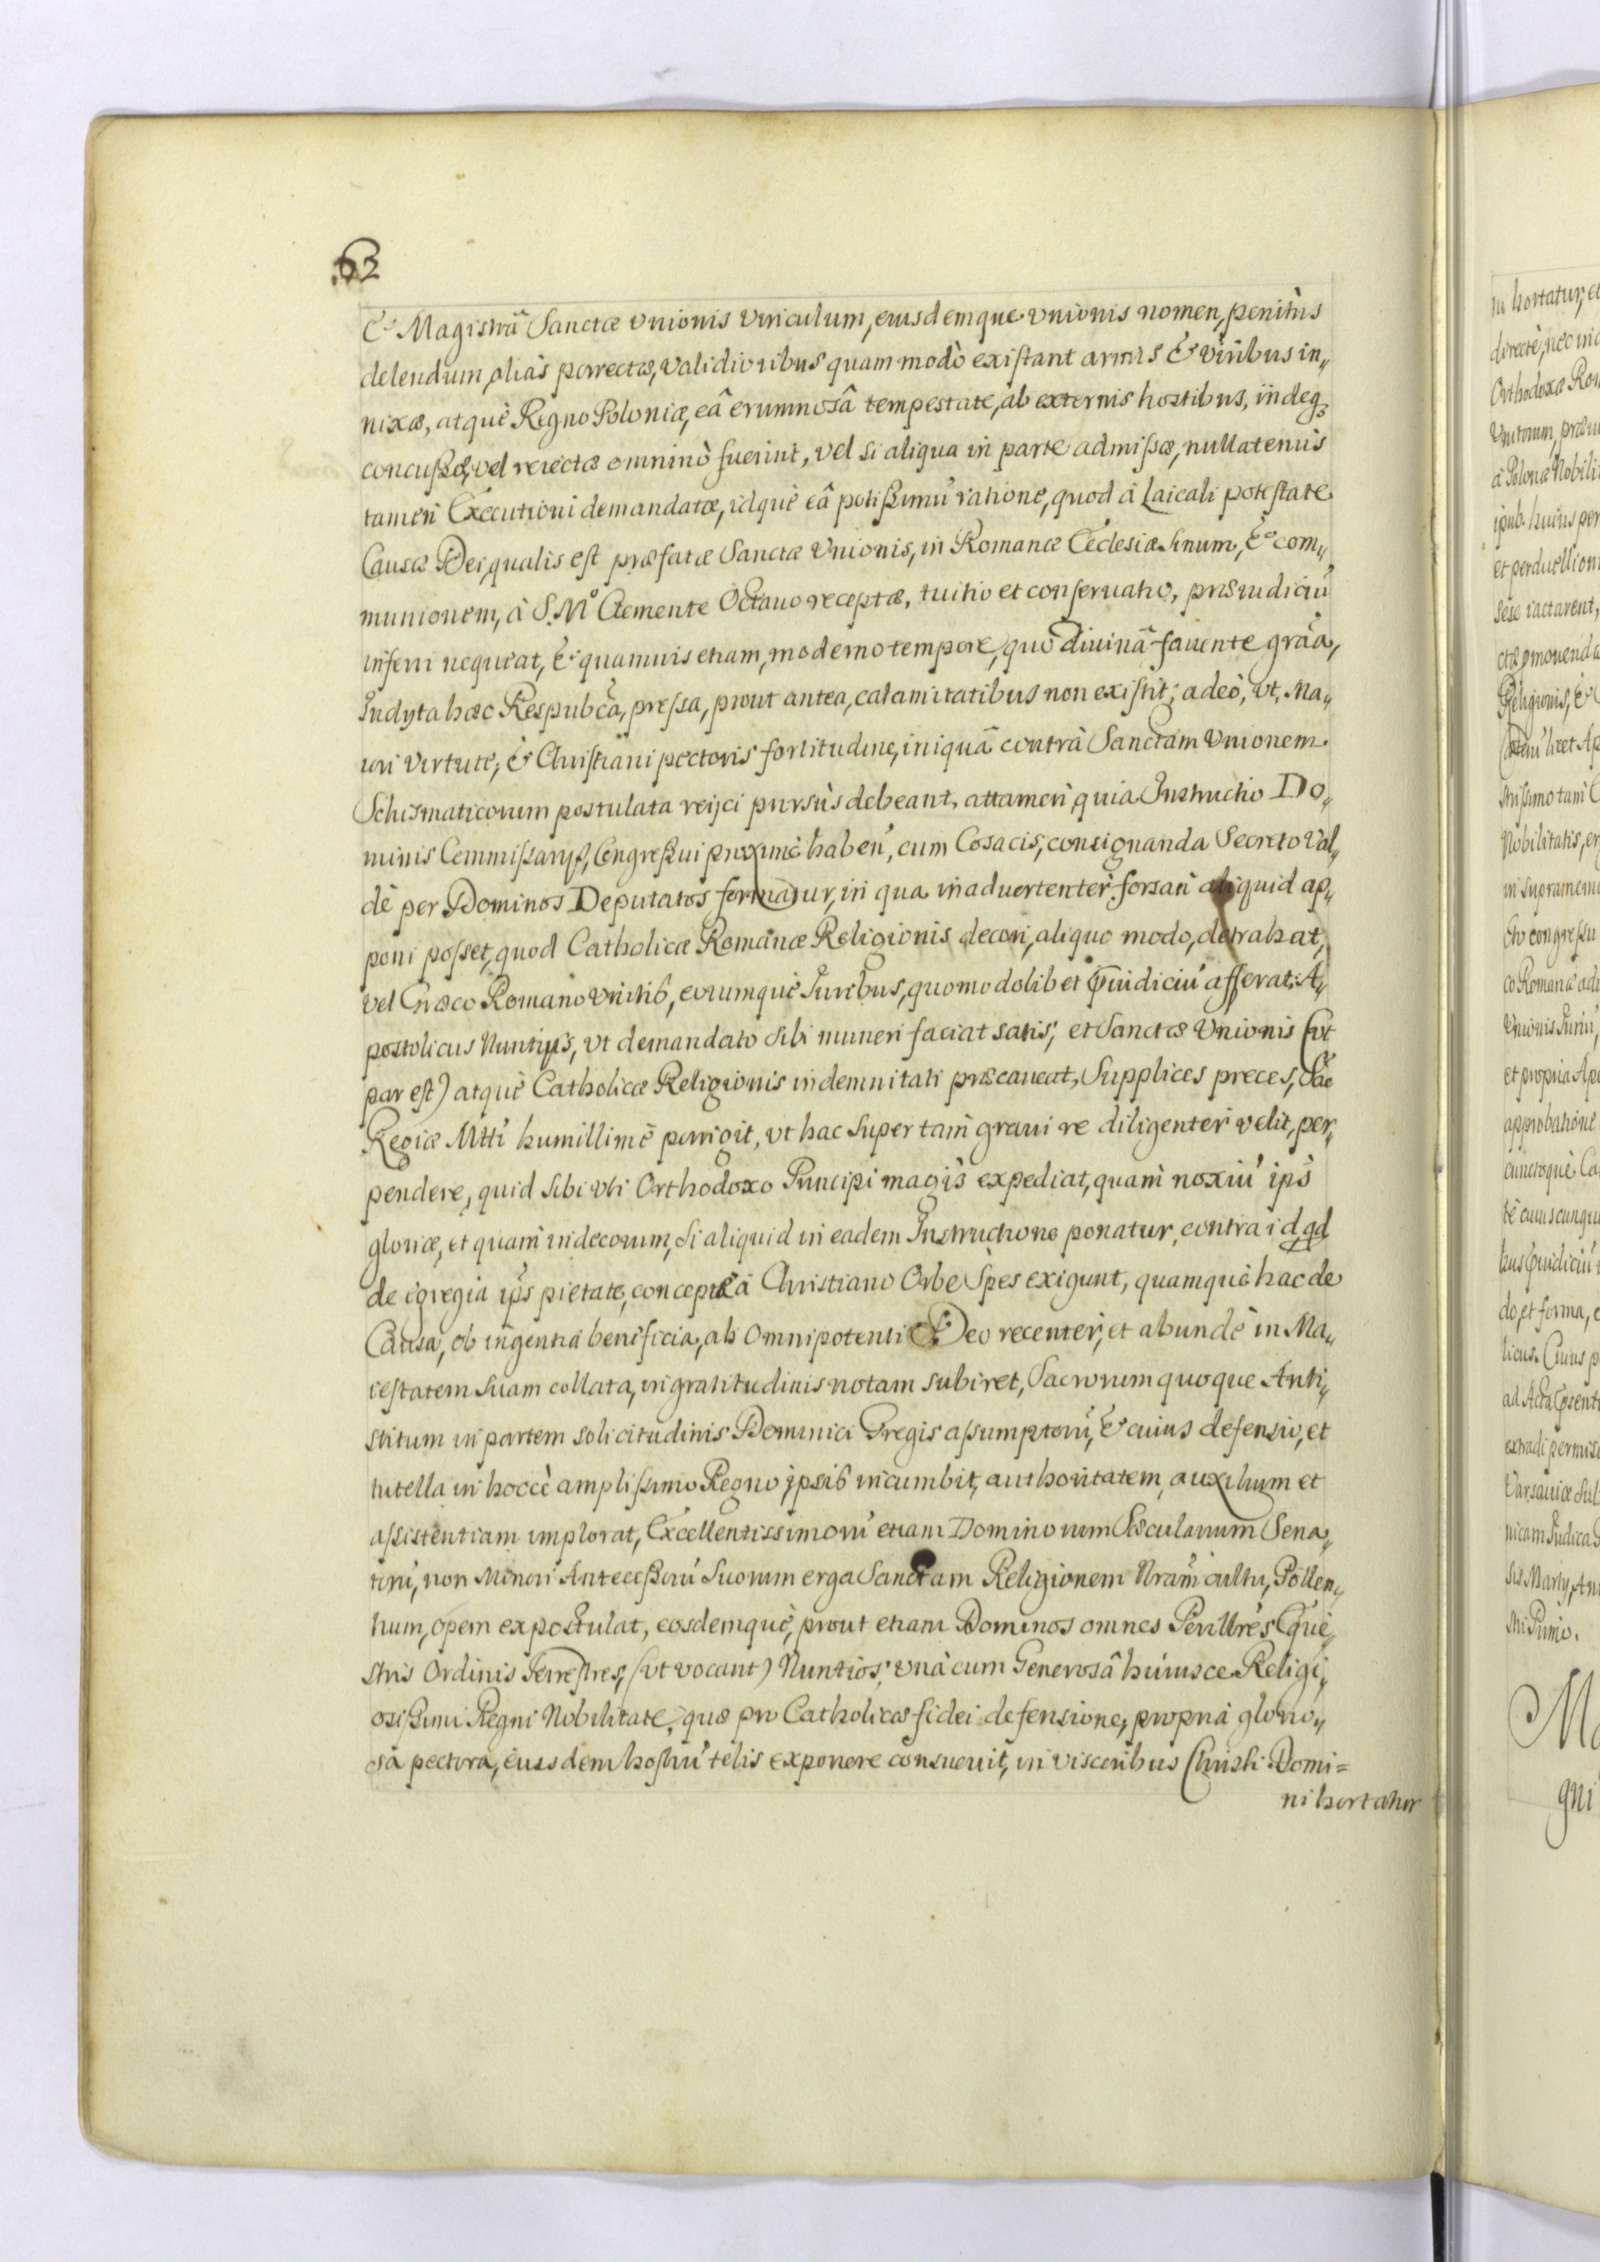 62
& Magistrâ Sanctæ Unionis Vinculum, eiusdemque Unionis nomen, penitùs
delendum, aliàs porrectæ, validioribus quam modò existant armis & Viribus in„
nixæ, atquè Regno Poloniæ, eâ erumnosâ tempestate, ab externis hostibus, indeq3
concussæ, vel reiectæ omninò fuerint, vel si aliqua in parte admissæ, nullatenus
tamen Executioni demandatæ, idquè eâ potissimū ratione, quod à Laicali potestate
Causæ Dei, qualis est præfatæ Sanctæ Unionis, in Romanæ Ecclesiæ sinum, & com„
munionem, à S. M.º Clemente Octavo receptæ, tuitio et conservatio, præiudiciū
inferri nequeat, & quamvis etiam, moderno tempore, quò divinâ favente grãa,
Inclyta hæc Respubcã, pressa, prout antea, calamitatibus non existit; adeò, ut, Ma„
iori Virtute, & Christiani pectoris fortitudine, iniquâ contrà Sanctam Unionem
Schismaticorum postulata reijci prorsùs debeant, attamen, quia Instructio Do„
minis Commissarijs, Congressui proximè haben', cum Cosacis, consignanda Secreto Val„
dè per Dominos Deputatos formatur, in qua inadvertenter forsan aliquid ap„
poni posset, quod Catholicæ Romanæ Religionis decori, aliquo modo, detrahat,
vel Græco Romano Unitis, eorumquè Iuribus, quomodolibet p̃iudiciū afferat: A„
postolicus Nuntius, ut demandato sibi muneri faciat satis, et Sanctæ Unionis (ut
par est) atquè Catholicæ Religionis indemnitati præcaveat, Supplices preces, Sac̃
Regiæ Mtti humillimè porrigit, ut hac super tam gravi re diligenter velit, per„
pendere, quid sibi uti Orthodoxo Principi magis expediat, quam noxiū ips̃
gloriæ, et quam indecorum, si aliquid in eadem Instructione ponatur, contra id, qd
de egregia ips̃ pietate, conceptæ à Christiano Orbe Spes exigunt, quamquè hac de
Causa, ob ingentia beneficia, ab Omnipotenti Deo recenter, et abundè in Ma„
iestatem Suam collata, ingratitudinis notam subiret, Sacrorum quoque Anti„
stitum in partem solicitudinis Dominici Gregis assumptorū, & cuius defensio, et
tutella in hoccè amplissimo Regno ipsis incumbit, authoritatem, auxilium et
assistentiam implorat, Excellentissimorū etiam Dominorum Sæcularium Sena„
torū, non Minori Antecessorū Suorum erga Sanctam Religionem Nram̃ cultu, Pollen„
tium, opem expostulat, eosdemquè, prout etiam Dominos omnes Perillres̃ Eque„
stris Ordinis Terrestres, (ut vocant) Nuntios, unà cum Generosâ huiusce Religi„
osissimi Regni Nobilitate, quæ pro Catholicæ fidei defensione, propria glorio„
sa pectora, eiusdem hostiū telis exponere consuevit, in visceribus Christi Domi=
ni hortatur